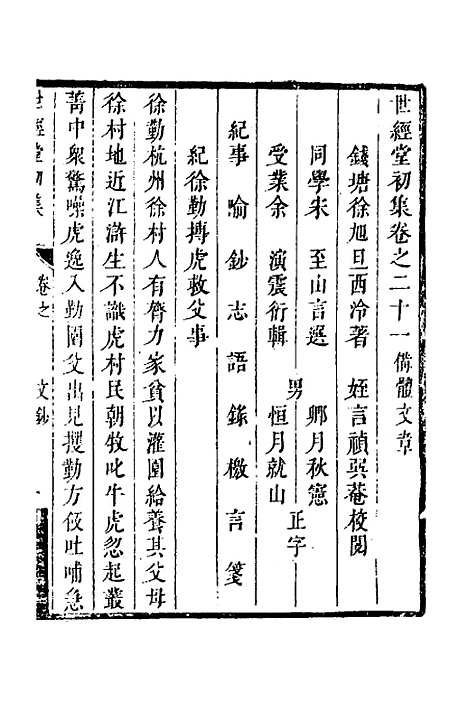 世經堂初集卷之二十一 俻體文章
錢塘徐旭旦西泠著 姪言禎巺菴校閱
同學朱 至山言選 鄉月秋憲
男 正字
受業余 演震衍輯 恒月就山
紀事 喻 鈔 志 語 錄 檄 言 箋
紀徐勤搏虎救父事
徐勤杭州徐村人有膂力家貧以灌園給養其父母
徐村地近江滸生不識虎村民朝牧叱牛虎忽起叢
菁中衆驚噪虎逸入勤園父出見攫勤方飯吐哺急
世經堂初集 卷之 文鈔 一